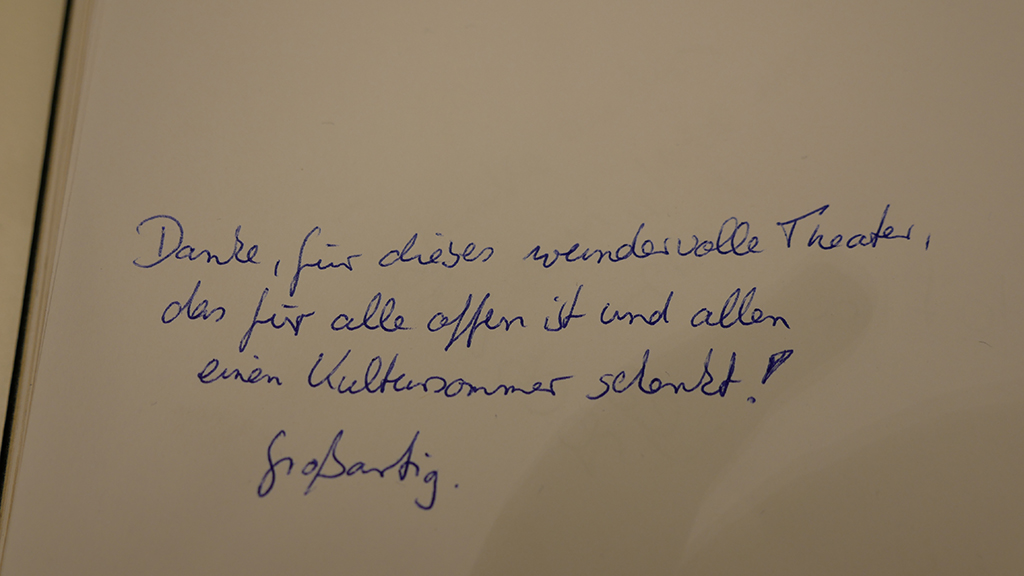 Danke, für dieses wundervolle Theater,
das für alle offen ist und allen
einen Kultursommer schenkt!
Großartig.